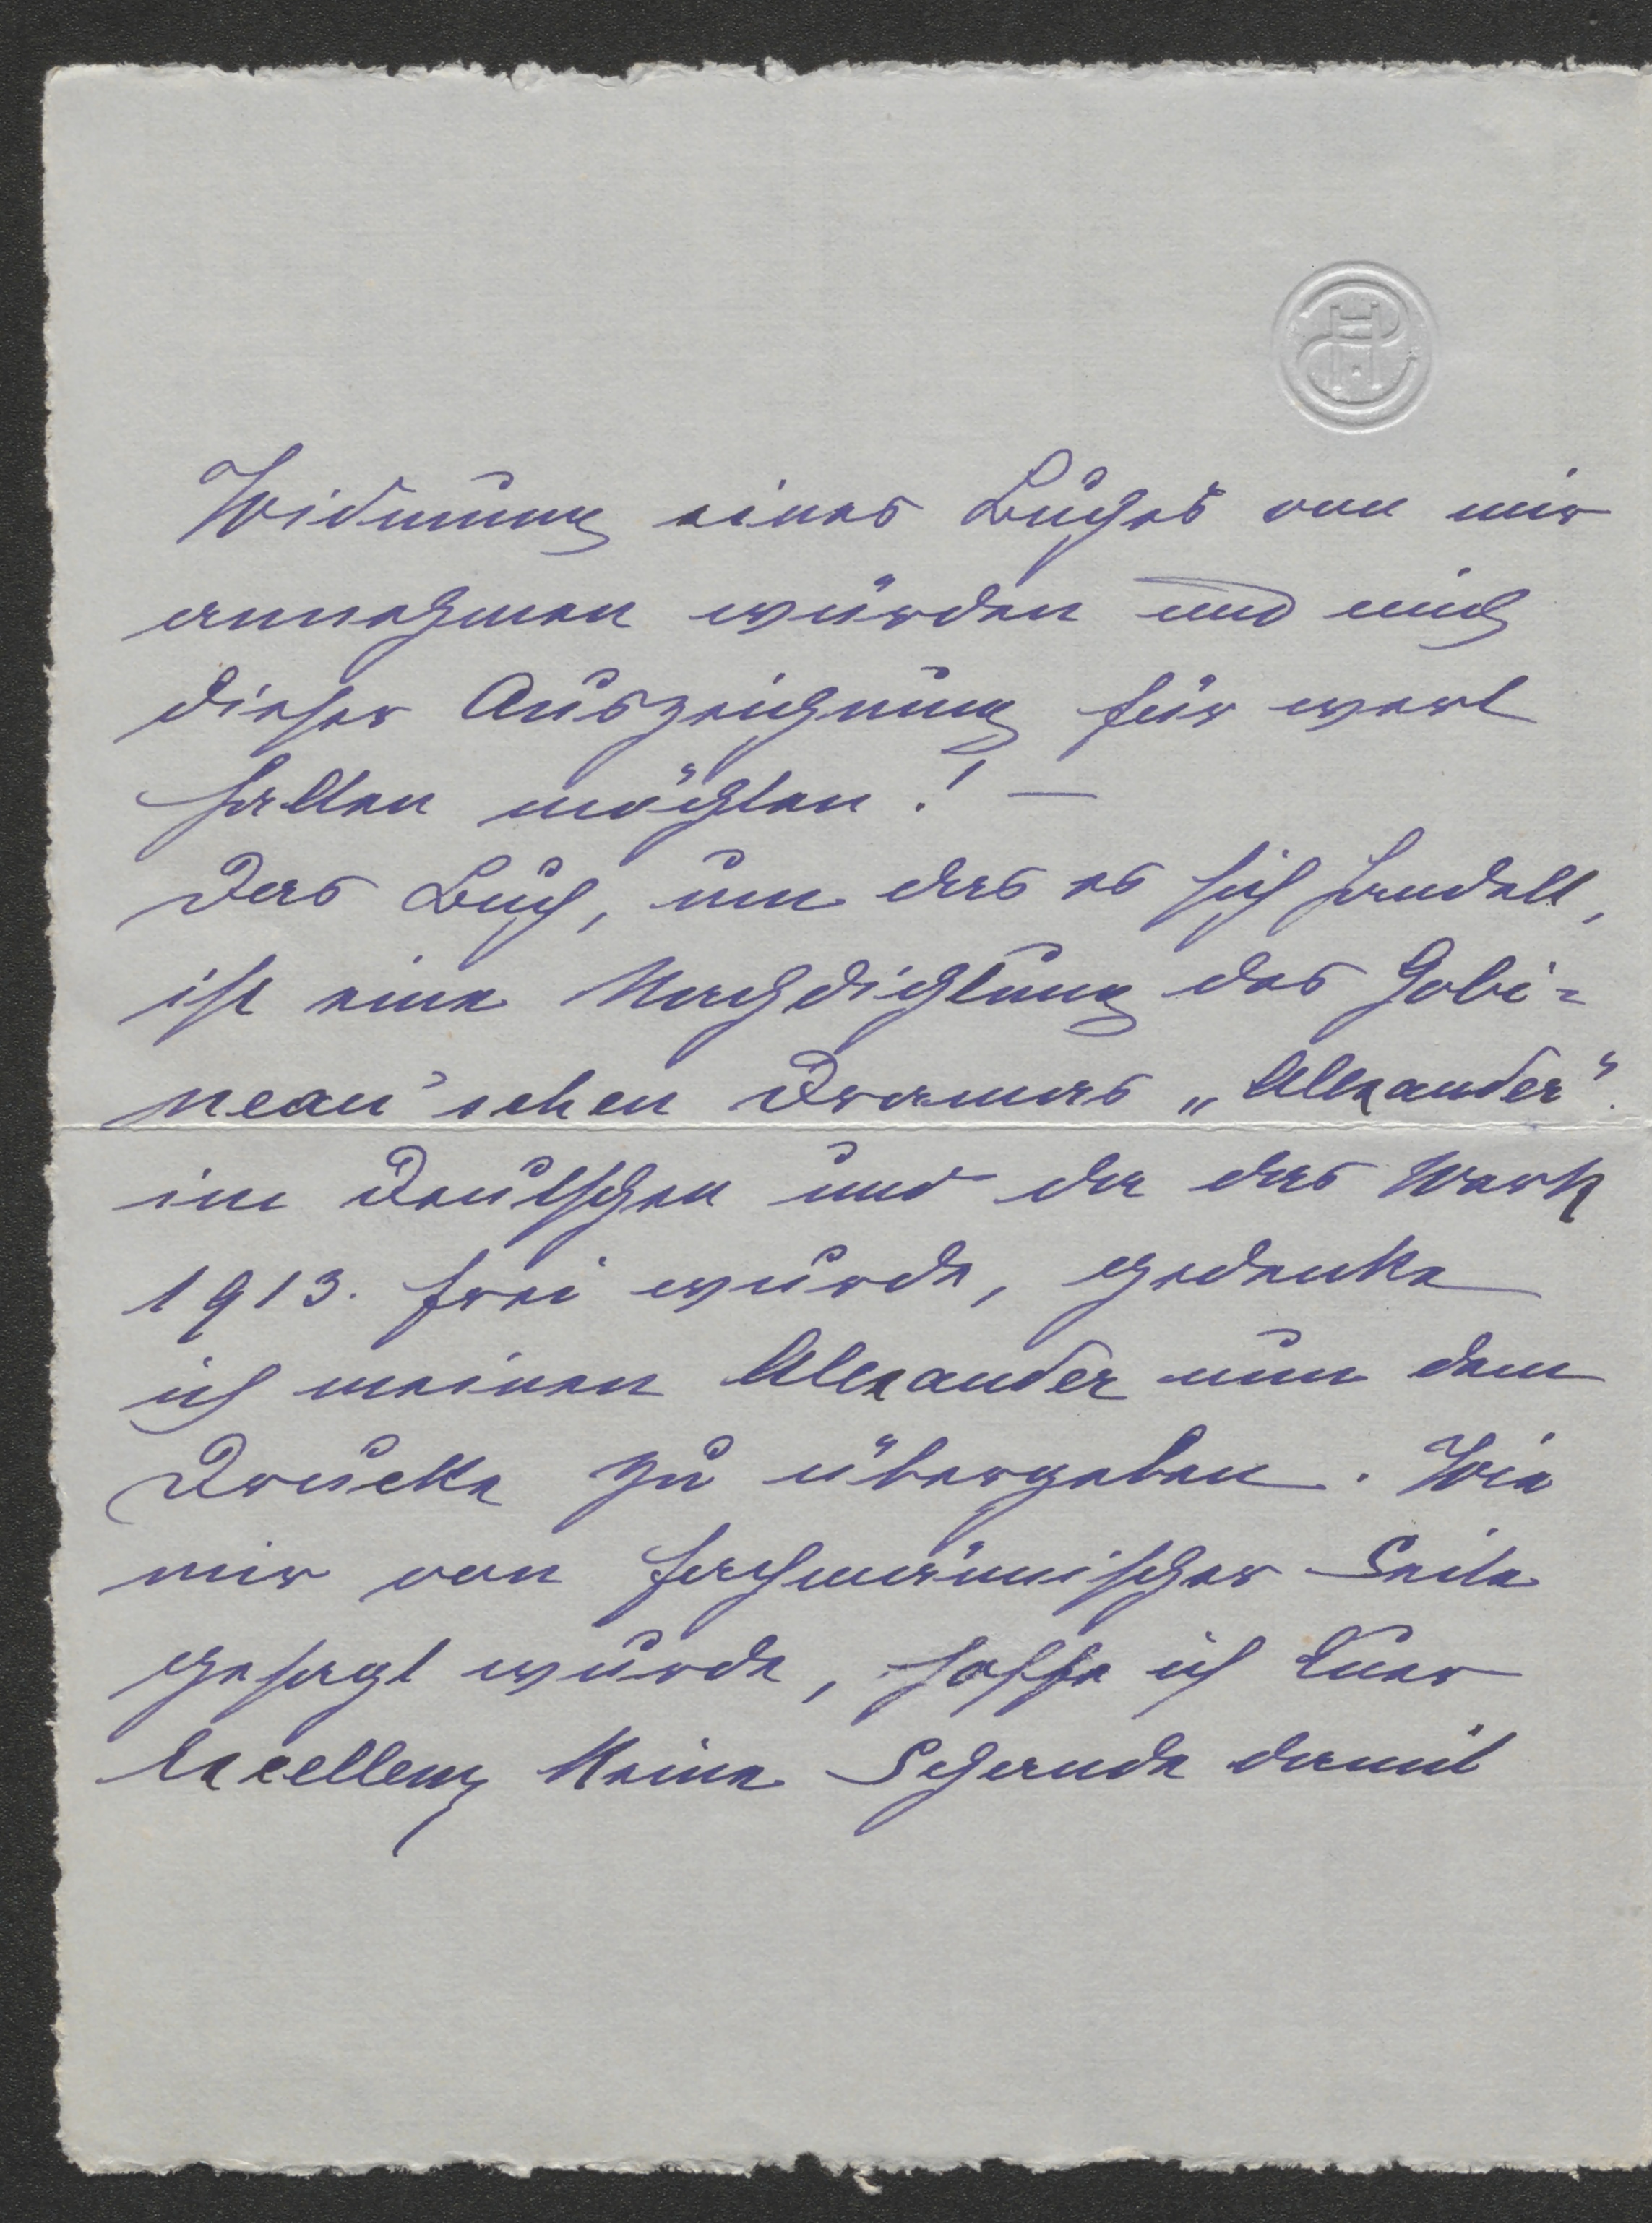 Widmung eines Buches von mir
annehmen würden und mich
dieser Auszeichnung für wert
halten möchten! —
Das Buch, um das es sich handelt,
ist eine Nachdichtung des Gobi=
neau'schen Dramas „Alexander".
im Deutschen und da das Werk
1913. frei wurde, gedenke
ich meinen Alexander nun dem
Drucke zu übergeben. Wie
mir von fachmännischer Seite
gesagt wurde, hoffe ich Euer
Excellenz keine Schande damit